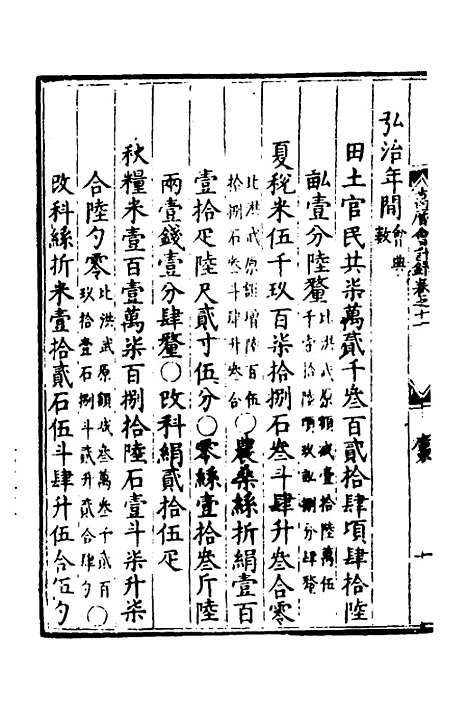 萬曆會計錄卷之十一
弘治年間會典數
田土官民共柒萬貳千叁百貳拾肆頃肆拾陸
畝壹分陸釐比洪武原額減壹拾陸萬伍千
夏稅米伍千玖百柒拾捌石叁斗肆升叁合零
比洪武原額增陸百伍拾捌石叁斗肆升叁合〇農桑絲折絹壹百
壹拾疋陸尺貳寸伍分〇零絲壹拾叁斤陸
兩壹錢壹分肆釐〇改科絹貳拾伍疋
秋糧米壹百壹萬柒百捌拾陸石壹斗柒升柒
合陸勺零比洪武原額減叁萬叁千貳百玖拾壹石捌斗貳升貳合肆勺〇
改科絲折米壹拾貳石伍斗肆升伍合伍勺